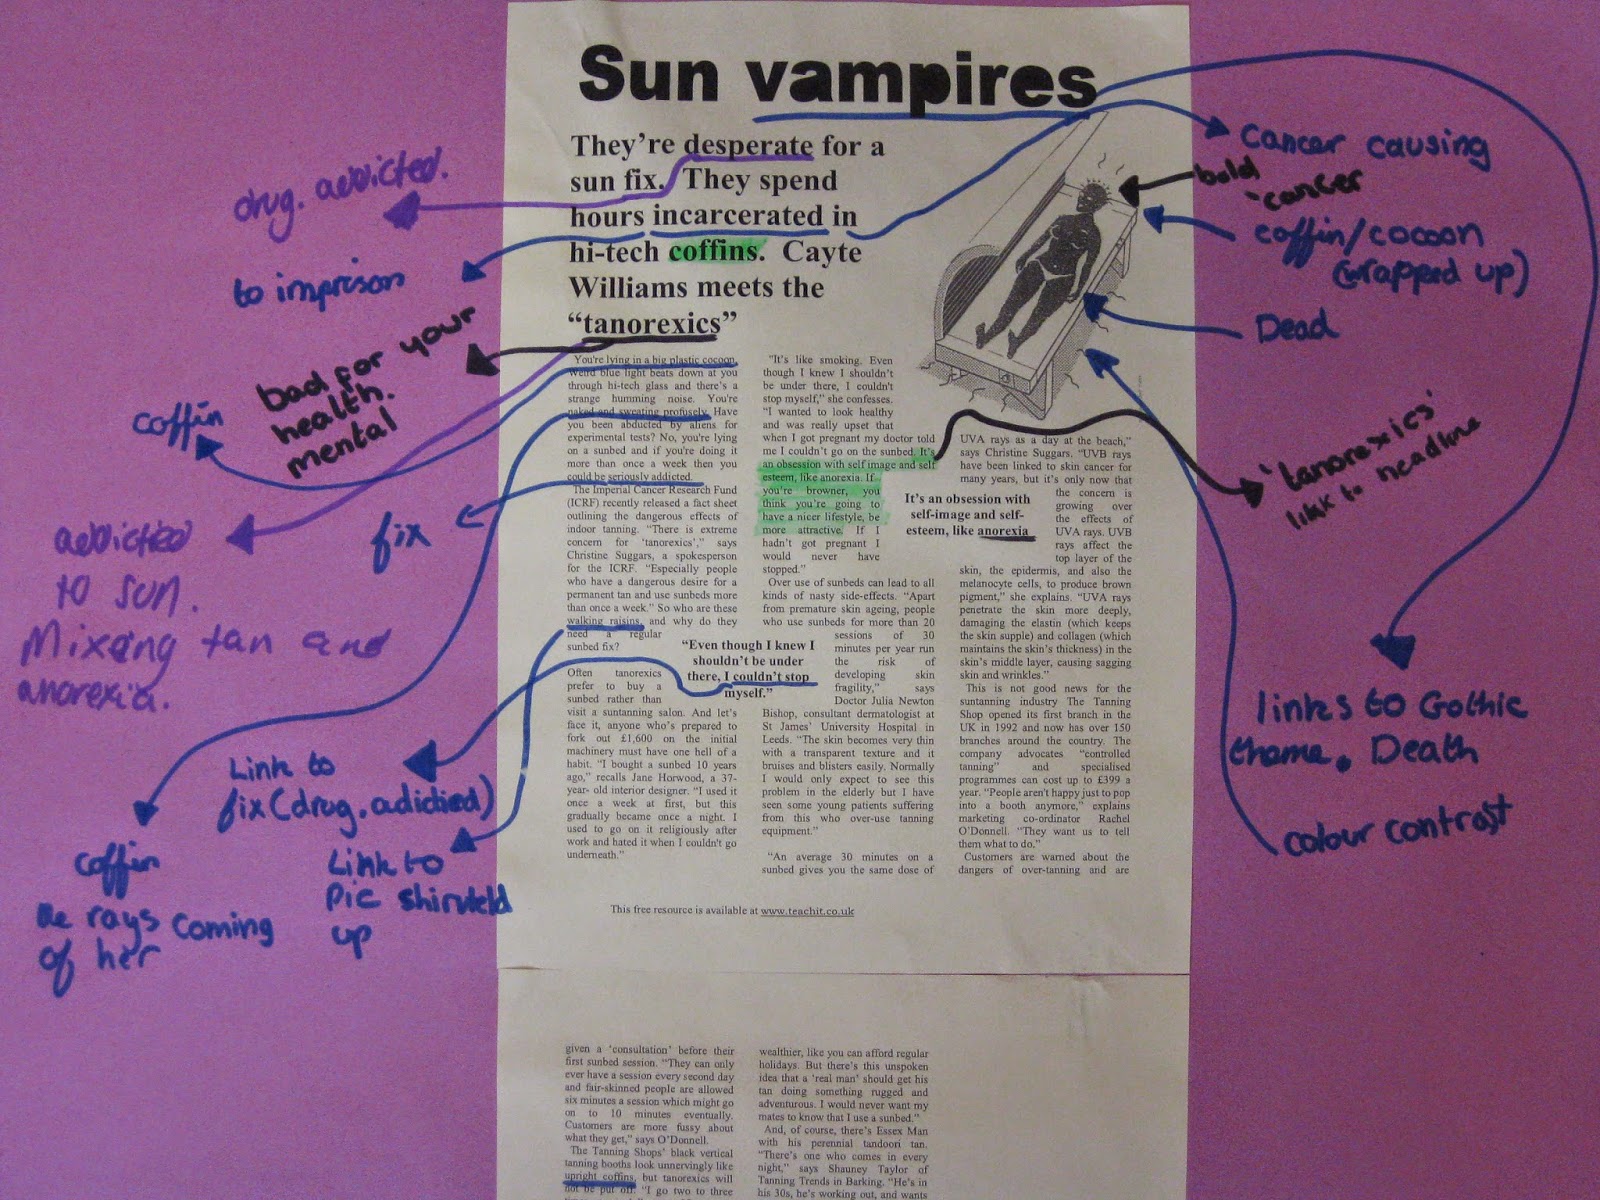 Sun vampires
They're desperate for a
sun fix. They spend
hours incarcerated in
hi-tech coffins. Cayte
Williams meets the
"tanorexics"
You're lying in a big plastic cocoon,
weird blue light beats down at you
through hi-tech glass and there's a
strange humming noise. You're
naked and sweating profusely. Have
you been abducted by aliens for
experimental tests? No, you're lying
on a sunbed and if you're doing it
more than once a week then you
could be seriously addicted.
The Imperial Cancer Research Fund
(ICRF) recently released a fact sheet
outlining the dangerous effects of
indoor tanning. "There is extreme
concern for 'tanorexics'," says
Christine Suggars, a spokesperson
for the ICRF. "Especially people
who have a dangerous desire for a
permanent tan and use sunbeds more
than once a week." So who are these
walking raisins, and why do they
need a regular
sunbed fix?
Often tanorexics
prefer to buy a
sunbed rather than
visit a suntanning salon. And let's
face it, anyone who's prepared to
fork out £1,600 on the initial
machinery must have one hell of a
habit. "I bought a sunbed 10 years
ago," recalls Jane Horwood, a 37-
year- old interior designer. "I used it
once a week at first, but this
gradually became once a night. I
used to go on it religiously after
work and hated it when I couldn't go
underneath."
"It's like smoking. Even
though I knew I shouldn't
be under there, I couldn't
stop myself," she confesses.
"I wanted to look healthy
and was really upset that
when I got pregnant my doctor told
me I couldn't go on the sunbed. It's
an obsession with self image and self
esteem, like anorexia. If
you're browner, you
think you're going to
have a nicer lifestyle, be
more attractive. If I
hadn't got pregnant I
would never have
stopped."
Over use of sunbeds can lead to all
kinds of nasty side-effects. "Apart
from premature skin ageing, people
who use sunbeds for more than 20
sessions of 30
minutes per year run
the risk of
developing skin
fragility," says
Doctor Julia Newton
Bishop, consultant dermatologist at
St James' University Hospital in
Leeds. "The skin becomes very thin
with a transparent texture and it
bruises and blisters easily. Normally
I would only expect to see this
problem in the elderly but I have
seen some young patients suffering
from this who over-use tanning
equipment."
"An average 30 minutes on a
sunbed gives you the same dose of
"Even though I knew I
shouldn't be under
there, I couldn't stop
myself."
UVA rays as a day at the beach,"
says Christine Suggars. "UVB rays
have been linked to skin cancer for
many years, but it's only now that
the concern is
growing over
the effects of
UVA rays. UVB
rays affect the
top layer of the
skin, the epidermis, and also the
melanocyte cells, to produce brown
pigment," she explains. "UVA rays
penetrate the skin more deeply,
damaging the elastin (which keeps
the skin supple) and collagen (which
maintains the skin's thickness) in the
skin's middle layer, causing sagging
skin and wrinkles."
This is not good news for the
suntanning industry The Tanning
Shop opened its first branch in the
UK in 1992 and now has over 150
branches around the country. The
company advocates "controlled
tanning" and specialised
programmes can cost up to £399 a
year. "People aren't happy just to pop
into a booth anymore," explains
marketing co-ordinator Rachel
O'Donnell. "They want us to tell
them what to do."
Customers are warned about the
dangers of over-tanning and are
It's an obsession with
self-image and self-
esteem, like anorexia
This free resource is available at www.teachit.co.uk
given a 'consultation' before their
first sunbed session. "They can only
ever have a session every second day
and fair-skinned people are allowed
six minutes a session which might go
on to 10 minutes eventually.
Customers are more fussy about
what they get," says O'Donnell.
The Tanning Shops' black vertical
tanning booths look unnervingly like
upright coffins, but tanorexics will
not be put off. "I go two to three
wealthier, like you can afford regular
holidays. But there's this unspoken
idea that a 'real man' should get his
tan doing something rugged and
adventurous. I would never want my
mates to know that I use a sunbed."
And, of course, there's Essex Man
with his perennial tandoori tan.
"There's one who comes in every
night," says Shauney Taylor of
Tanning Trends in Barking. "He's in
his 30s, he's working out, and wants
drug. addicted.
to imprison
bad for your
health.
mental
coffin
fix
addicted
to sun.
Mixing tan and
anorexia.
Link to
fix (drug. adictied)
coffin
rays coming
of her
Link to
pic
up
cancer causing
bald
cancer
coffin/cocoon
(wrapped up)
Dead
'tanorexics'
link to headline
links to Gothic
theme. Death
colour contrast